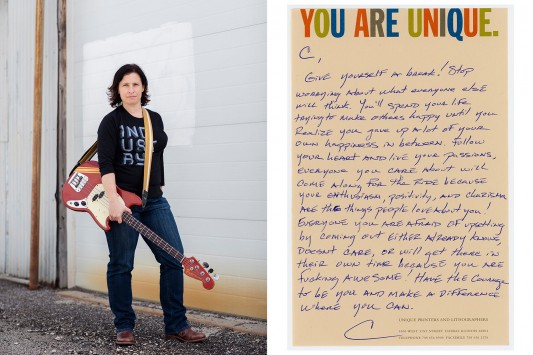 IND
UST
BY
YOU ARE UNIQUE.
C,
GIVE YOURSELF A BREAK! STOP
WORRYING ABOUT WHAT EVERYONE ELSE
WILL THINK. YOU'LL SPEND YOUR LIFE
TRYING TO MAKE OTHERS HAPPY UNTIL YOU
REALIZE YOU GAVE UP A LOT OF YOUR
OWN HAPPINESS IN BETWEEN. FOLLOW
YOUR HEART AND LIVE YOUR PASSIONS.
EVERYONE YOU CARE ABOUT WILL
COME ALONG FOR THE RIDE BECAUSE
YOUR ENTHUSIASM, POSITIVITY, AND CHARISMA
ARE THE THINGS PEOPLE LOVE ABOUT YOU!
EVERYONE YOU ARE AFRAID OF UPSETTING
BY COMING OUT EITHER ALREADY KNOWS,
DOESN'T CARE, OR WILL GET THERE IN
THEIR OWN TIME BECAUSE YOU ARE
FUCKING AWESOME! HAVE THE COURAGE
TO BE YOU AND MAKE A DIFFERENCE
WHERE YOU CAN.
C
UNIQUE PRINTERS AND LITHOGRAPHERS